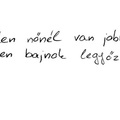 en nőnél van job
en bajnok legyőz